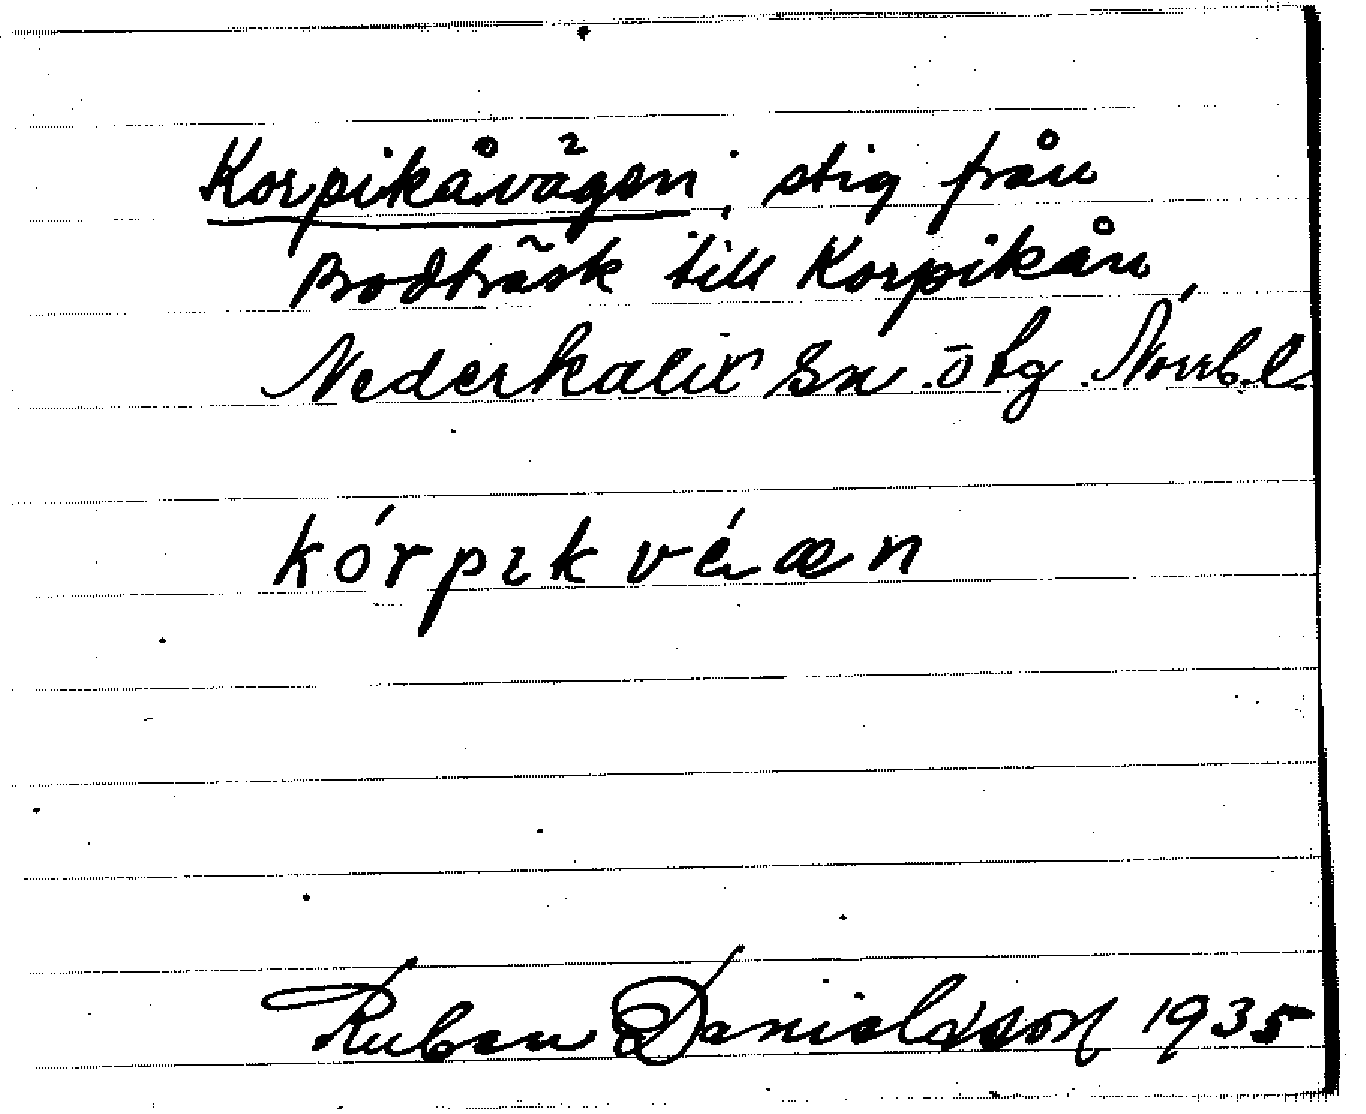 Korpikåvägen, stig från
Brodträsk till Korpikån,
Nederkalix Sn. ö tg. Norrb. l.
kórpıkvéæn
Ruben Danielsson 1935